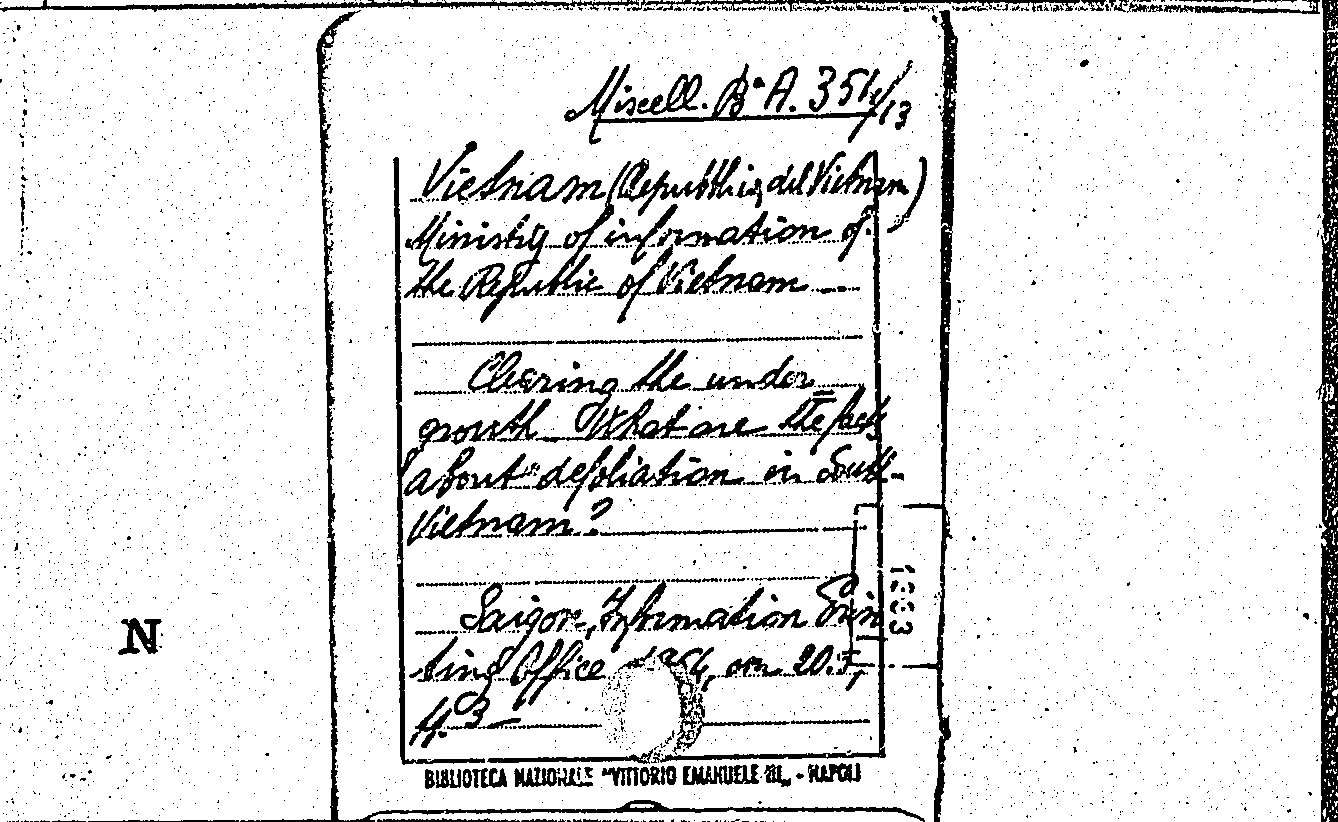 Miscell. Bª A. 351/13
Vietnam (Repubblica del Vietnam)
Ministry of information of
the Republic of Vietnam
Clearing the under
growth What are the facts
about defoliation in South
Vietnam?
Saigon, Information Prin
ting Office 1964, cm 20.5,
H. 3
BIBLIOTECA NAZIONALE "VITTORIO EMANUELE III" - NAPOLI
1963
N